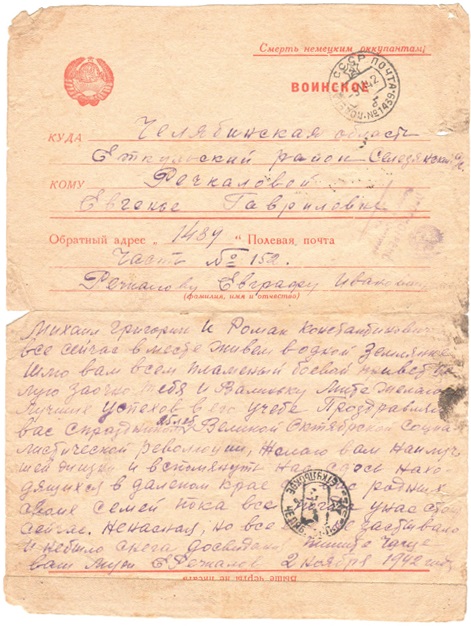 Смерть немецким оккупантам!
СССР ПОЧТА
ВОИНСКОЕ
КУДА Челябинская области
Еткульский район
КОМУ Речкаловой
Евгенье Гавриловне
Обратный адрес „ 1489 " Полевая почта
Часть № 152
Речкалову Евграфу
(фамилия, имя и отчество)
Михаил Григории и Роман Константинович
все сейчас вместе живем водной Землянке
Шлю вам всем пламеный боевой привет
заочно тебя и
Лучших успехов в его учебе Проздравляю
вас спраздником Великой Октябрской Социа
листической революции, желаю вам наилуч
шей и вспомянуть нас здесь нахо
дящихся в далеком крае родных
своих семей пока все
сейчас. Ненасная, но все
и небыло снега досвидания пишите чаще
ваш муж Е Речкалов 2 ноября 1942 года
Выше черты не писать